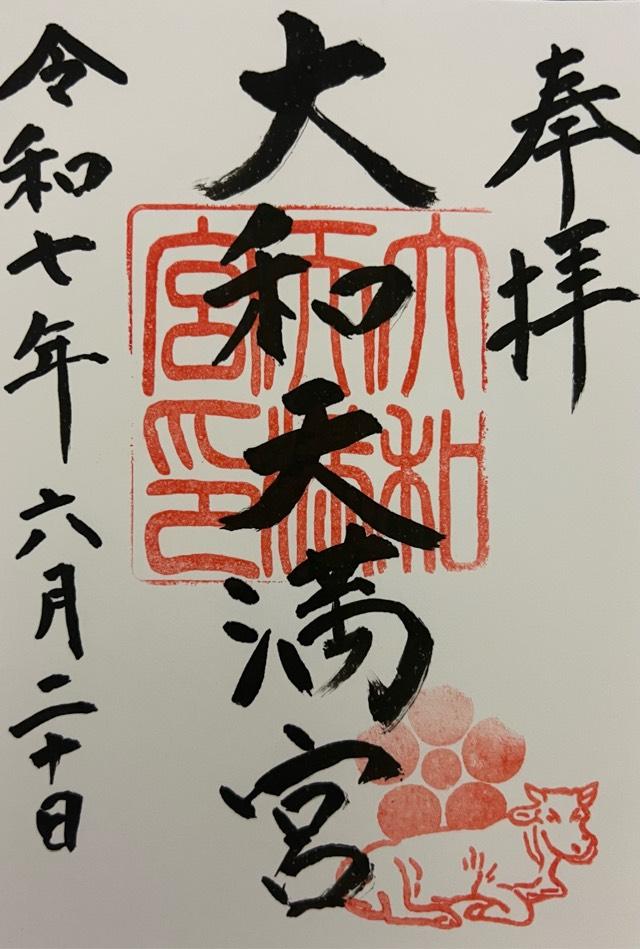 奉拝
大和天満宮
大和天満宮印
令和七年六月二十日